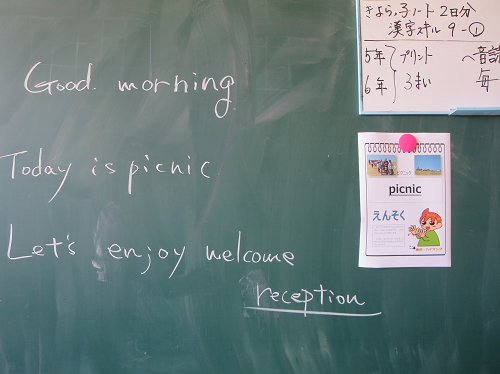 Good. morning
Today is picnic
Let's enjoy welcome
reception
きょう,子ノート2日分
漢字スキル 9-①
5年 プリント
6年 3まい
音読
毎
picnic
えんそく